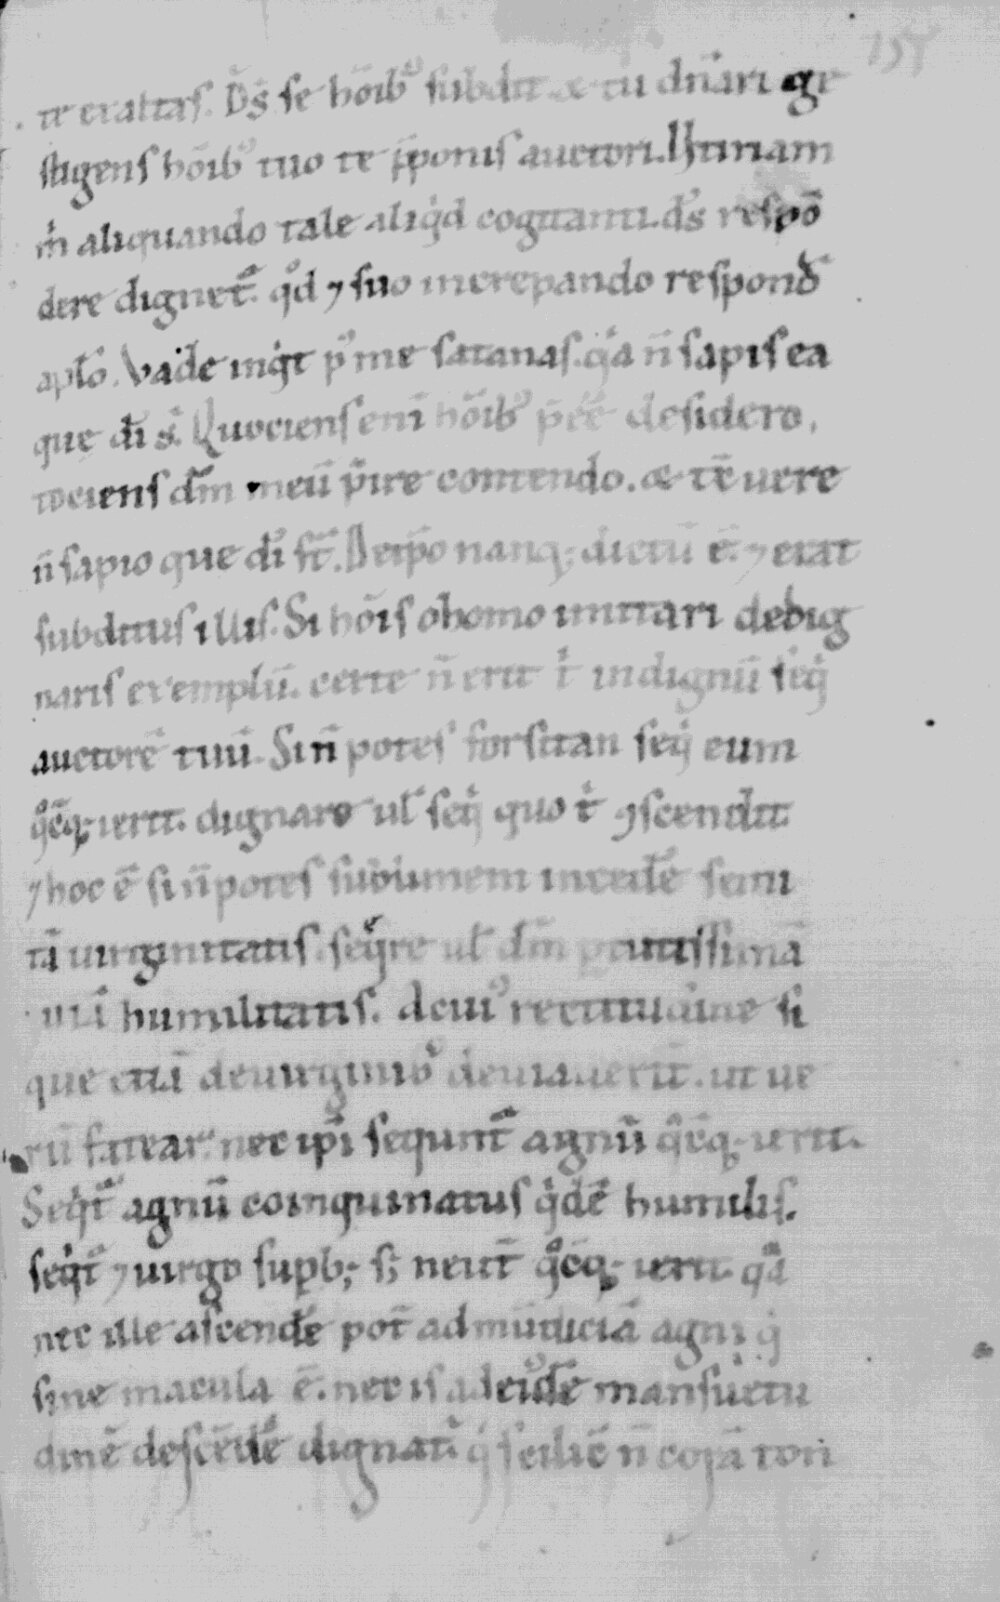 te exaltas. D̄s se hōib᷒ subdit & tu dn̄ari ge
stigens hōib᷒ tuo te p̄ponis auctori. Utinam
m̄ aliquando tale aliqͥd cogitanti. ds̄ respō
dere dignet᷑. qͦd ⁊ suo increpando respond᷑
apl̄o. Vade inqͥt pꝰ me satanas. qͣa n̄ sapis ea
que dī sͭ. Quociens enī hōib᷒ p̄eē desidero,
tociens dm̄ meū p̄ire contendo. & tē uere
n̄ sapio que dī sͭ. De ip̄o nanq; dictū ē. ⁊ erat
subditus illis. Si hōis o homo imitari dedig
naris exemplū. certe n̄ erit tͥ indignū seqͥ
auctorē tuū. Si n̄ potes forsitan seqͥ eum
qͦcūq; ierit. dignare ul̄ seqͥ quo tͥ ꝯscendit
⁊ hoc ē si n̄ potes sublimem incedē semi
tā uirginitatis. seqͥre ul̄ dm̄ p tutissimā
uiā humilitatis. A cui᷒ rectitudine si
que etiā de uirginib᷒ deuiauerit. ut ue
rū fatear. nec ip̄i sequnt᷑ agnū qͦcūq; ierit.
Seqͥt᷑ agnū coinquinatus qͥdē humilis.
seqͥt᷑ ⁊ uirgo supb; s; neut̄ qͦcūq; ierit. qͣa
nec ille ascendē pot̄ ad mūdiciā agni qͥ
sine macula ē. nec is ad ei᷒dē mansuetu
dinē descēdē dignat᷑ qͥ scilic̄ n̄ corā ton